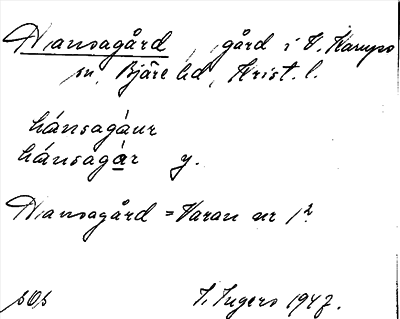 Hansagård, gård i V. Karups
sn, Bjäre hd, Krist. l.
hánsagáur
hánsagár y.
Hansagård = Varan nr 1²
sOs I. Ingers 1947.